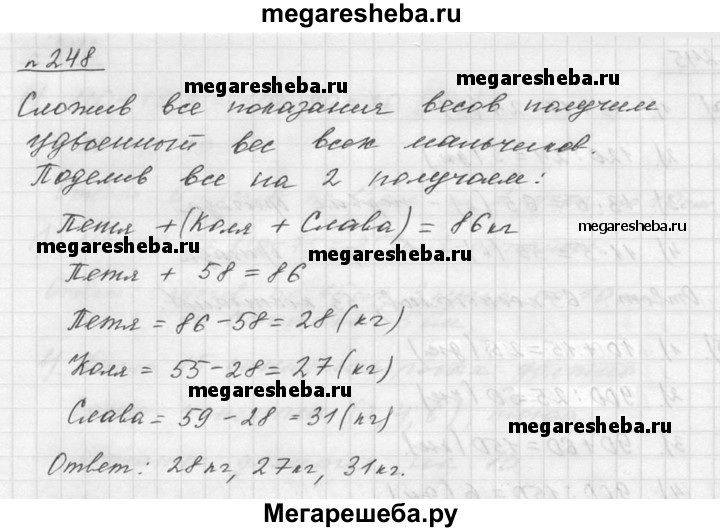 megaresheba.ru
n 248
megaresheba.ru
Сложив все показания весов получим
удвоенный вес всех мальчиков.
Поделив все на 2 получаем:
Петя + (Коля + Слава) = 86 кг
megaresheba.ru
megaresheba.ru
megaresheba.ru
Петя + 58 = 86
Петя = 86 - 58 = 28 (кг)
Коля = 55 - 28 = 27 (кг)
megaresheba.ru
Слава = 59 - 28 = 31 (кг)
megaresheba.ru
Ответ: 28 кг, 27 кг, 31 кг.
Мегарешеба.ру